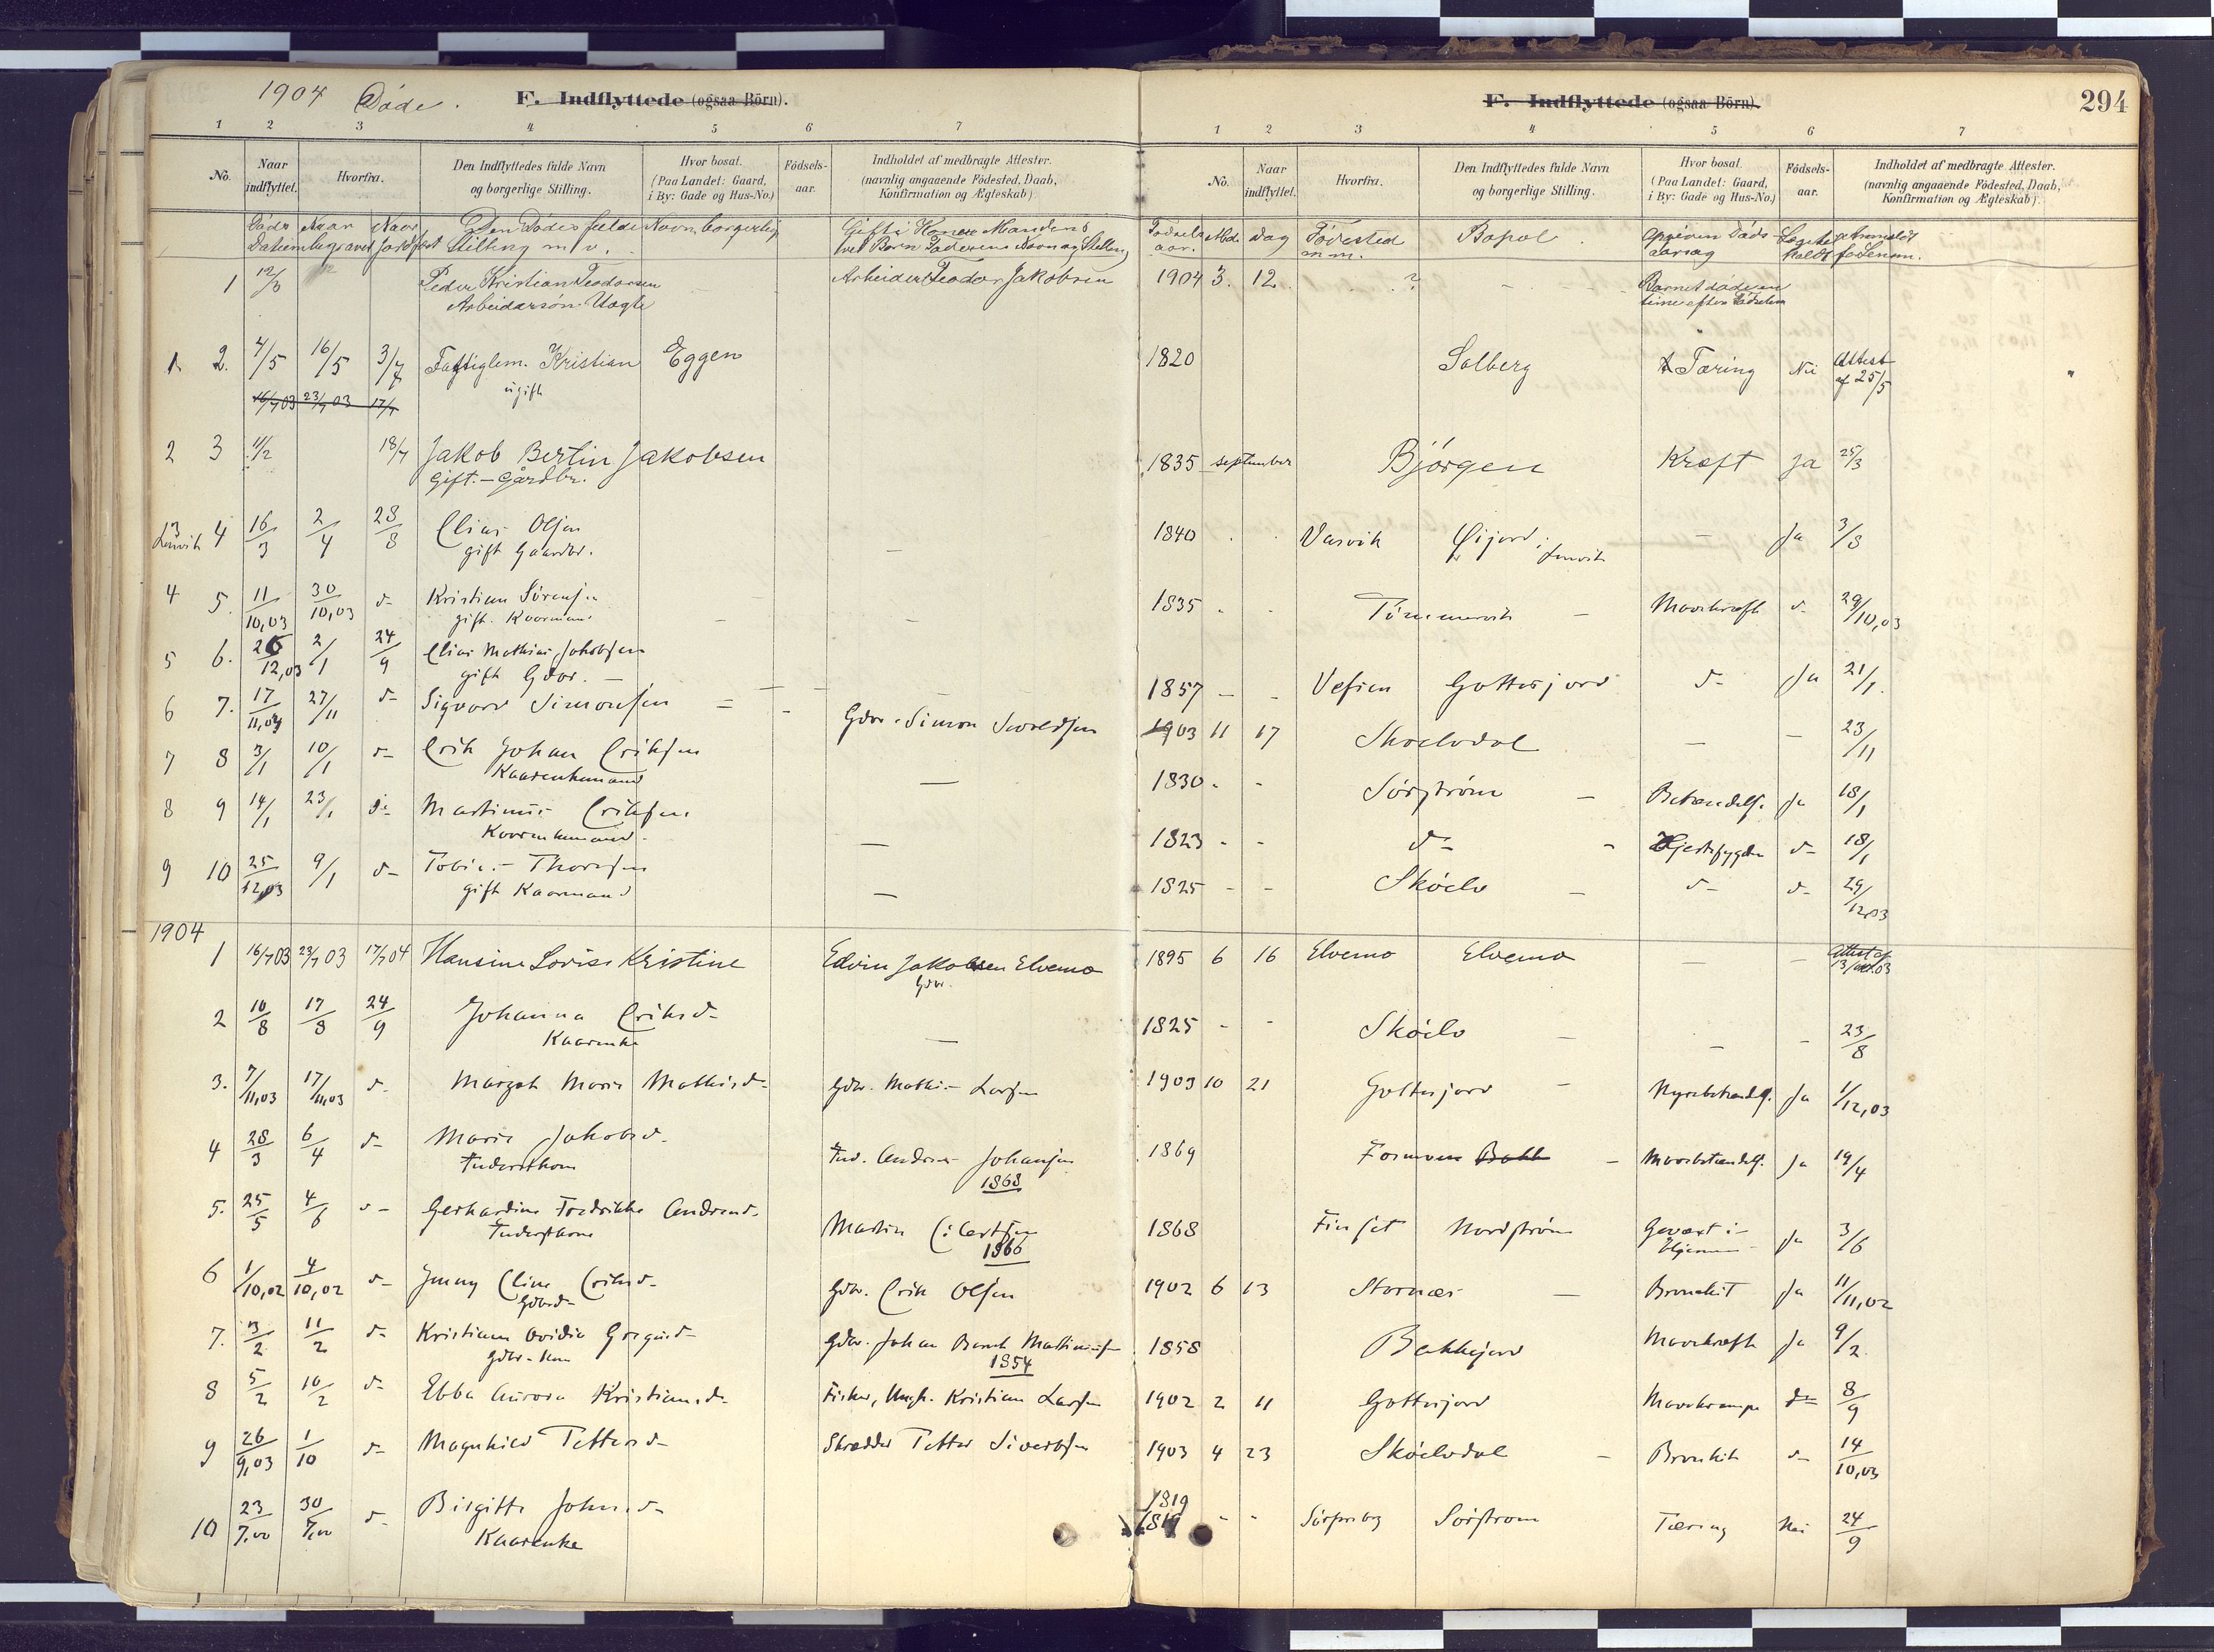 1904 Døde.
F. Indflyttede (ogsaa Børn).
1 2 3 4 5 6 7
No. Naar indflyttet. Hvorfra. Den Indflyttedes fulde Navn og borgerlige Stilling. Hvor bosat. (Paa Landet: Gaard, i By: Gade og Hus-No.) Fødsels-aar. Indholdet af medbragte Attester. (navnlig angaaende Fødested, Daab, Konfirmation og Ægteskab)
Døds Datum Naar begravet Naar Jordfæst Den Dødes fulde Navn, borgerlig Stilling m. v. Gifte Koner Mandens
1 12/3 Peder Kristian Teodorsen Arbeider Teodor Jakobsen
Arbeidersøn Uægte
1. 2. 4/5 16/5 3/7 Fattiglem. Kristian Eggen
ugift
16/7 03 23/7 03 17/7
2 3 11/2 18/7 Jakob Bertin Jakobsen
Gift. - Gårdbr.
3 Lenvik 4 16/3 2/4 28/8 Elias Olsen
gift Gaardbr.
4 5. 11/10,03 30/10,03 d- Kristian Sørensen
gift. Kaarmand
5 6. 26/12,03 2/1 24/9 Elias Mathias Jakobsen
gift Gdbr. -
6 7. 17/11,03 27/11 d- Sigvard Simonsen Gdbr. Simon
7 8 3/1 10/1 d- Erik Johan Eriksen
Kaarenkemand
8 9 14/1 23/1 d- Martinus Eriksen
Kaarenkemand.
9 10 25/12,03 9/1 d- Tobias Thoresen
gift Kaarmand
1904
1 16/7 03 23/7 03 17/7 04 Hansine Lovise Kristine Edvin Jakobsen Elvemo
Gdbr.
2 10/8 17/8 24/9 Johanna Eriksd-
Kaarenke
3. 7/11,03 17/11,03 d- Margot Marie Mathisd- Gdbr. Mathis Larsen
4 28/3 6/4 d- Marie Jakobsd- Ind. Andreas Johansen
Inderstkone 1868
5. 25/5 4/6 d- Gerhardine Fredrikke Andreasd. Martin
Inderstkone 1866
6 1/10,02 4/10,02 d- Jenny Eline Eriksd- Gdbr. Erik Olsen
Gdbrd-
7. 3/2 11/2 d- Kristiane Ovidia Gregusd- Gdbr. Johan Bernt
Gdbr-kone 1854
8 5/2 10/2 d- Ebba Aurora Kristiansd- Fisker, Ungk. Kristian Larsen
9 26/9,03 1/10 d- Magnhild Pettersd- Skrædder Petter Sivertsen
10 23/7,00 30/7,00 d- Birgitte Johnsd-
Kaarenke
F. Indflyttede (ogsaa Børn). 294
1 2 3 4 5 6 7
No. Naar indflyttet. Hvorfra. Den Indflyttedes fulde Navn og borgerlige Stilling. Hvor bosat. (Paa Landet: Gaard, i By: Gade og Hus-No.) Fødsels-aar. Indholdet af medbragte Attester. (navnlig angaaende Fødested, Daab, Konfirmation og Ægteskab).
Fødsels aar. Md. Dag Fødested m.m. Bopæl. Opgiven Døds aarsag
1904 3. 12 ? Barnet døde en
time efter Fødselen
1820 Solberg Tæring Nei Attest af 25/5
1835 september Bjørgen Kræft Ja 25/3
1840 Vasvik Øijord, Lenvik - Ja 3/8
1835 Tømmervik - Mavekræft d- 29/10,03
1857 - - Vefsen Gottesjord d- Ja 21/1.
1903 11 17 Skoelvdal - - 23/11
1830 - Sørstrøm - Betændelse Ja 18/1
1823 - - d- - Hjertesygdom d- 18/1
1825 - - Skøelv - d- d- 29/12,03
1895 6 16 Elvemo Elvemo - - Attest af 13/ 03
1825 - - Skøelv - - - 23/8
1903 10 21 Gottesjord - Nyrebetændels. Ja 1/12,03
1869 Formoen Bakk - Mavebetændels. Ja 19/4
1868 Finset Nordstrøm Gevæxt i Hjernen Ja 3/6
1902 6 13 Stornæs - Bronchit Ja 11/11,02
1858 Bakkejord Mavekræft Ja 9/2
1902 2 11 Gottesjord Mavekrampe d- 8/9
1903 4 23 Skøelvdal - Bronkit d- 14/10,03
1819
1819 - - Sørreisen Sørstrøm Tæring Nei 24/9